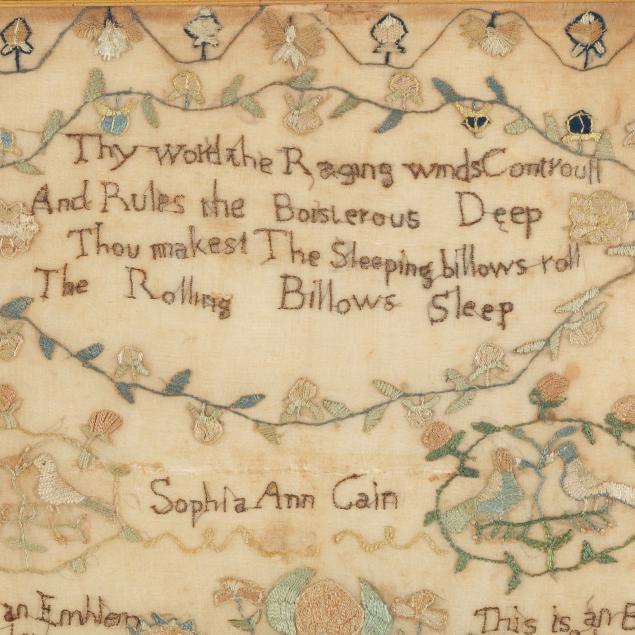 Thy word the Raging winds Controull
And Rules the Boisterous Deep
Thou makest The Sleeping billows roll
The Rolling Billows Sleep
Sophia Ann Cain
an Emblem
This is an E